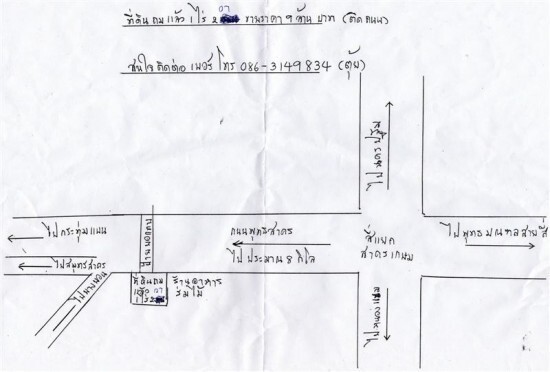 ที่ดินถมแล้ว 1 ไร่ 2 07 ขายราคา 9 ล้าน บาท (ติดถนน)
สนใจติดต่อ เบอร์โทร 086-3149834 (ตุ้ย)
ไปนครปฐม
ไปกระทุ่มแบน
ถนนพุทธสาคร
ไปประมาณ 8 กิโล
สี่แยก
สาครเกษม
ไปพุทธมณฑลสายสี่
ไปสมุทรสาคร
ที่ดินถม
แล้ว 07
1 ไร่ 2
ร้านอาหาร
ร่มไม้